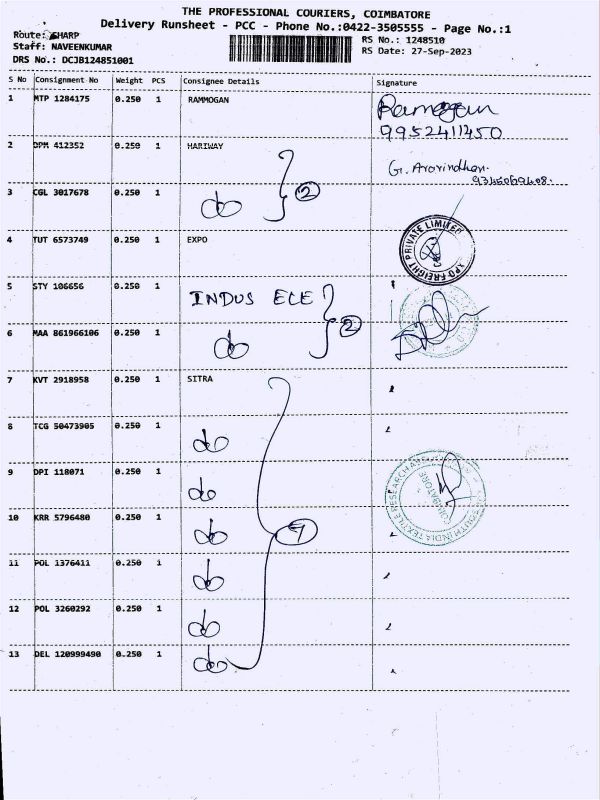 THE PROFESSIONAL COURIERS, COIMBATORE
Delivery Runsheet - PCC - Phone No.:0422-3505555 - Page No.:1
Route: SHARP
RS No.: 1248510
Staff: NAVEENKUMAR
RS Date: 27-Sep-2023
DRS No.: DCJB124851001
S No Consignment No Weight PCS Consignee Details Signature
1 MTP 1284175 0.250 1 RAMMOGAN
9952411450
2 DPM 412352 0.250 1 HARIWAY G. Aravindhan.
3 CGL 3017678 0.250 1 do 2
4 TUT 6573749 0.250 1 EXPO XPO FREIGHT PRIVATE LIMITED
5 STY 106656 0.250 1 INDUS ELE
6 MAA 861966106 0.250 1 do 2
7 KVT 2918958 0.250 1 SITRA
8 TCG 50473905 0.250 1 do
9 DPI 118071 0.250 1 do
10 KRR 5796480 0.250 1 do 7
11 POL 1376411 0.250 1 do
12 POL 3260292 0.250 1 do
13 DEL 120999490 0.250 1 do